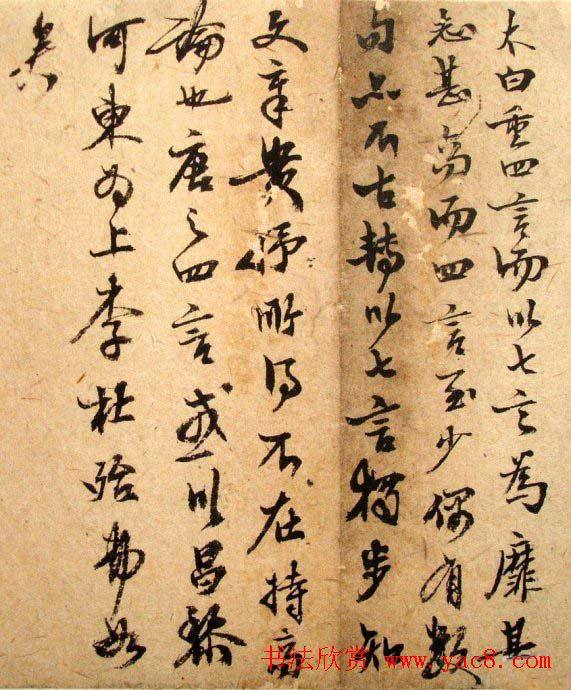 太白重四言而以七言為靡其
志甚高而四言至少偶有数
句亦不古轉以七言獨步知
文章貴抒所得不在持高
論也唐之四言或以昌黎
河東为上李杜殆弗如
矣
书法欣赏 www.yac8.com